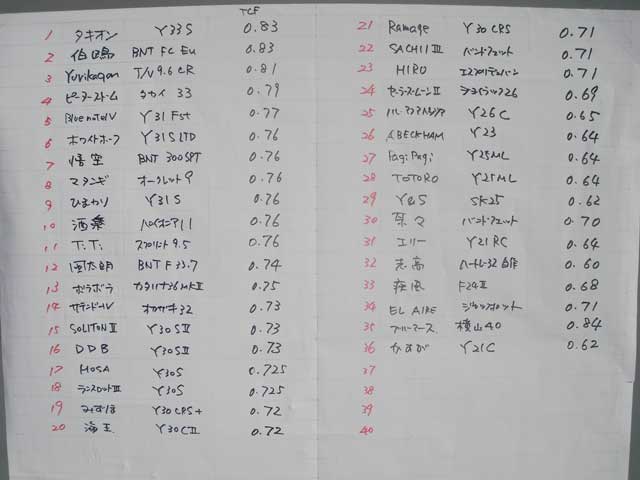 TCF
1 タキオン Y33S 0.83
2 伯鴎 BNT FC Eu 0.83
3 Yurikagon T/V 9.6 CR 0.81
4 ピーターストーム タカイ 33 0.79
5 Bluenote IV Y31 Fst 0.77
6 ホワイトホーク Y31S LTD 0.76
7 悟空 BNT 300SPT 0.76
8 マタンギ オークレット9 0.76
9 ひまわり Y31S 0.76
10 酒楽 パイオニア11 0.76
11 T.T. スプリント9.5 0.76
12 風太朗 BNT F33.7 0.74
13 ボラボラ カタリナ36MKII 0.75
14 サザンドールV オカザキ32 0.73
15 SOLITON II Y30SII 0.73
16 DDB Y30SII 0.73
17 MOSA Y30S 0.725
18 ランスロットIII Y30S 0.725
19 みずほ Y30CRS+ 0.72
20 海王 Y30CII 0.72
21 Ramage Y30CRS 0.71
22 SACHI III 0.71
23 HIRO 0.71
24 セーラームーンII 26 0.69
25 Y26C 0.65
26 BECKHAM Y23 0.64
27 PagiPagi Y25ML 0.64
28 TOTORO Y25ML 0.64
29 Y&S SK25 0.62
30 0.70
31 エリー Y21RC 0.64
32 志高 32自作 0.60
33 疾風 F24II 0.68
34 EL AIRE 0.71
35 横山40 0.84
36 かすが Y21C 0.62
37
38
39
40